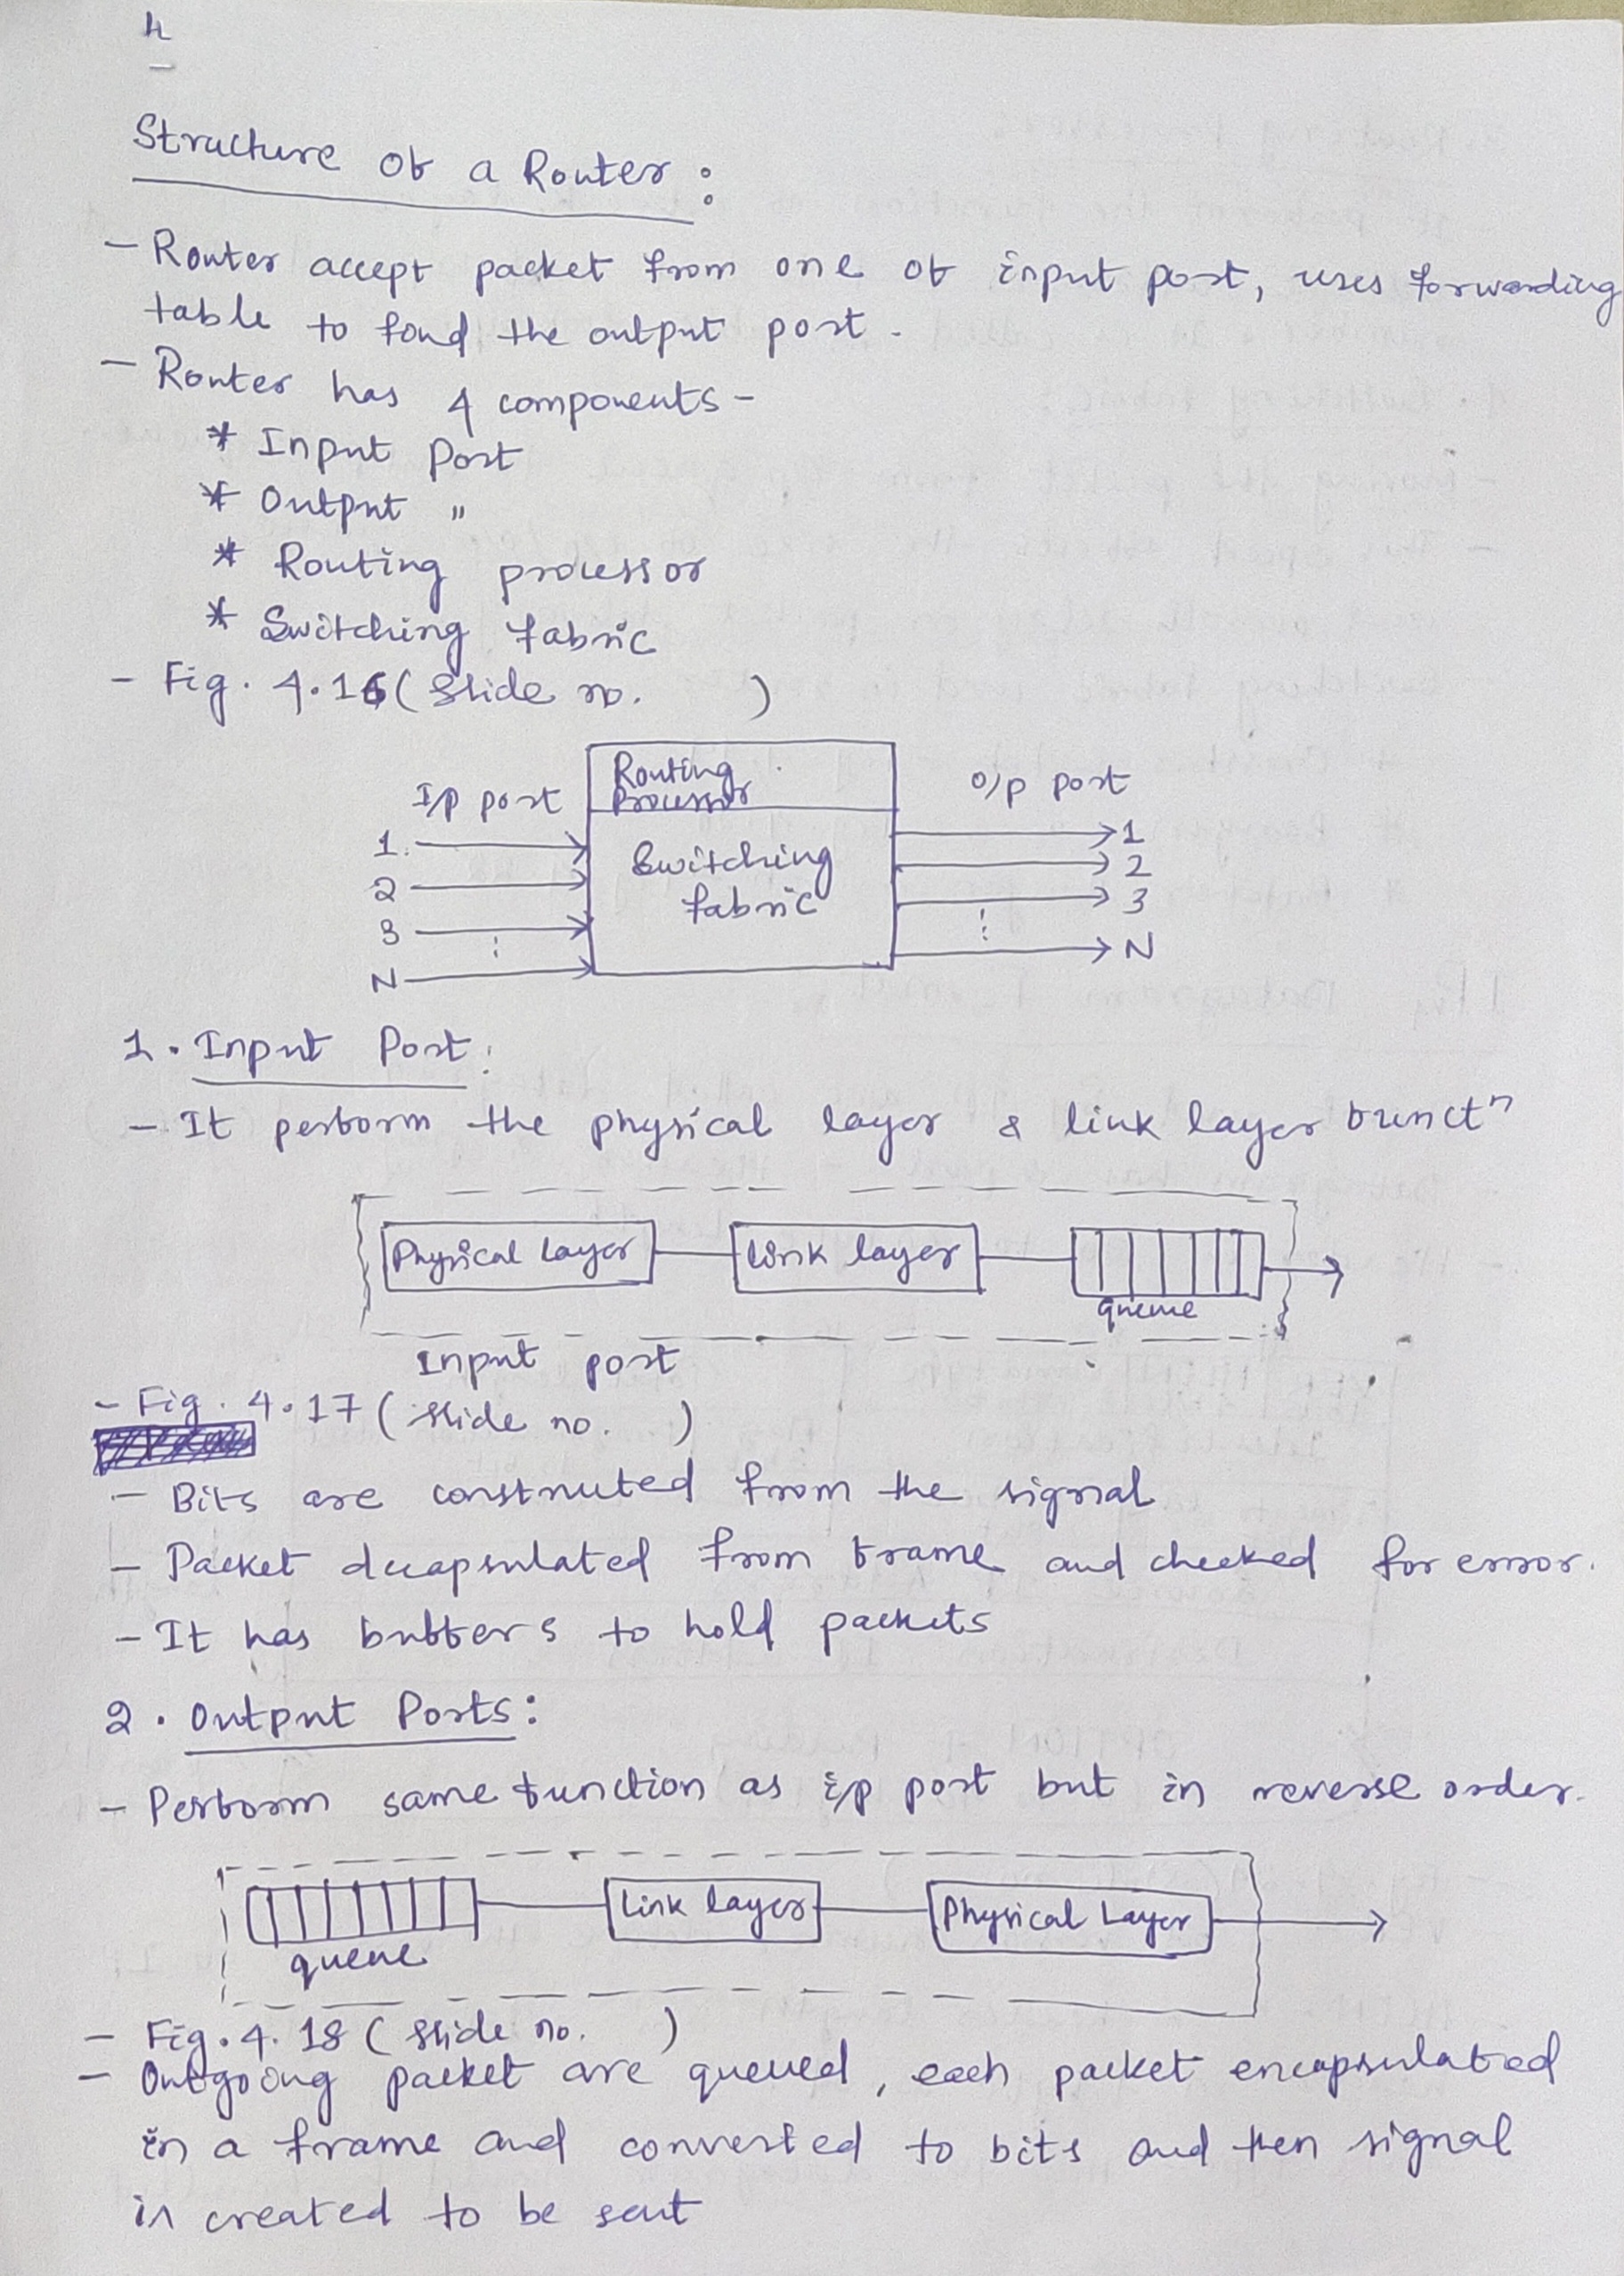 4
Structure of a Router :
- Router accept packet from one of input port, uses forwarding
table to find the output port.
- Router has 4 components -
* Input Port
* Output "
* Routing processor
* Switching fabric
- Fig. 4.16 ( Slide no. )
Routing
Processor
I/p port
O/p port
1.
2
3
⋮
N
Switching
fabric
1
2
3
⋮
N
1. Input Port:
- It perform the physical layer & link layer functⁿ
Physical Layer
Link layer
queue
Input port
- Fig. 4.17 ( Slide no. )
- Bits are constructed from the signal
- Packet decapsulated from frame and checked for error.
- It has buffers to hold packets
2. Output Ports:
- Perform same function as i/p port but in reverse order.
queue
Link layer
Physical Layer
- Fig. 4.18 ( Slide no. )
- Outgoing packet are queued, each packet encapsulated
in a frame and converted to bits and then signal
is created to be sent